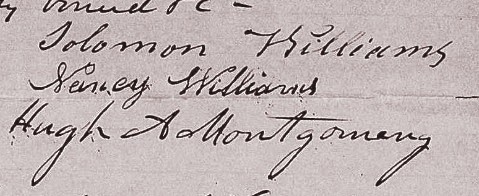 Solomon Williams
Nancy Williams
Hugh A Montgomery